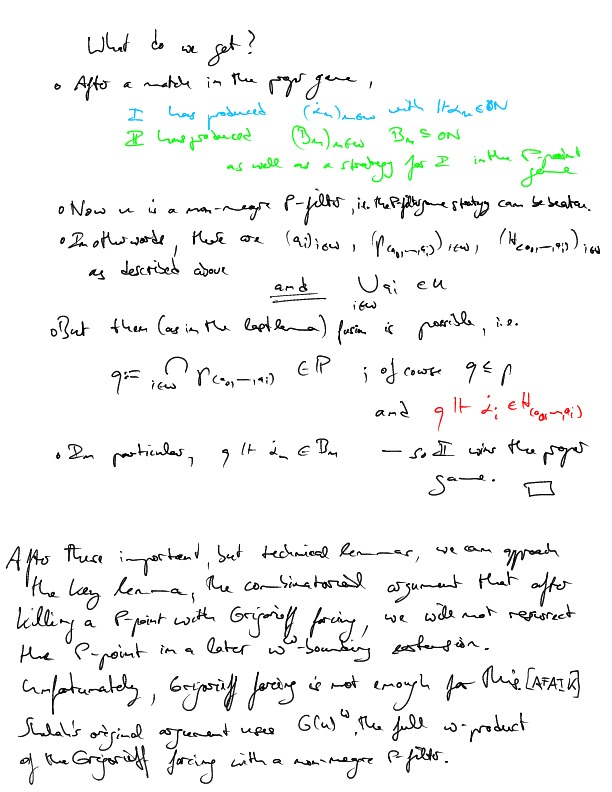 What do we get?
∘ After a match in the proper game,
I has produced (α̇ₙ)ₙ∈ω with ⊩ α̇ₙ ∈ ON
II has produced (Bₙ)ₙ∈ω Bₙ ⊆ ON
as well as a strategy for I in the P-point
game
∘ Now u is a non-meagre P-filter, i.e. the P-filter game strategy can be beaten.
∘ In other words, there are (aᵢ)ᵢ∈ω, (p₍a₀,…,aᵢ₎)ᵢ∈ω, (H₍a₀,…,aᵢ₎)ᵢ∈ω
as described above
and ⋃ aᵢ ∈ u
i∈ω
∘ But then (as in the last lemma) fusion is possible, i.e.
q := ⋂ᵢ∈ω p₍a₀,…,aᵢ₎ ∈ ℙ ; of course q ≤ p
and q ⊩ α̇ᵢ ∈ H₍a₀,…,aᵢ₎
∘ In particular, q ⊩ α̇ₙ ∈ Bₙ — so II wins the proper
game. □
After these important, but technical lemmas, we can approach
the key lemma, the combinatorial argument that after
killing a P-point with Grigorieff forcing, we will not resurrect
the P-point in a later ω^ω-bounding extension.
Unfortunately, Grigorieff forcing is not enough for this. [AFAIK]
Shelah's original argument uses G(u)^ω, the full ω-product
of the Grigorieff forcing with a non-meagre P-filter.